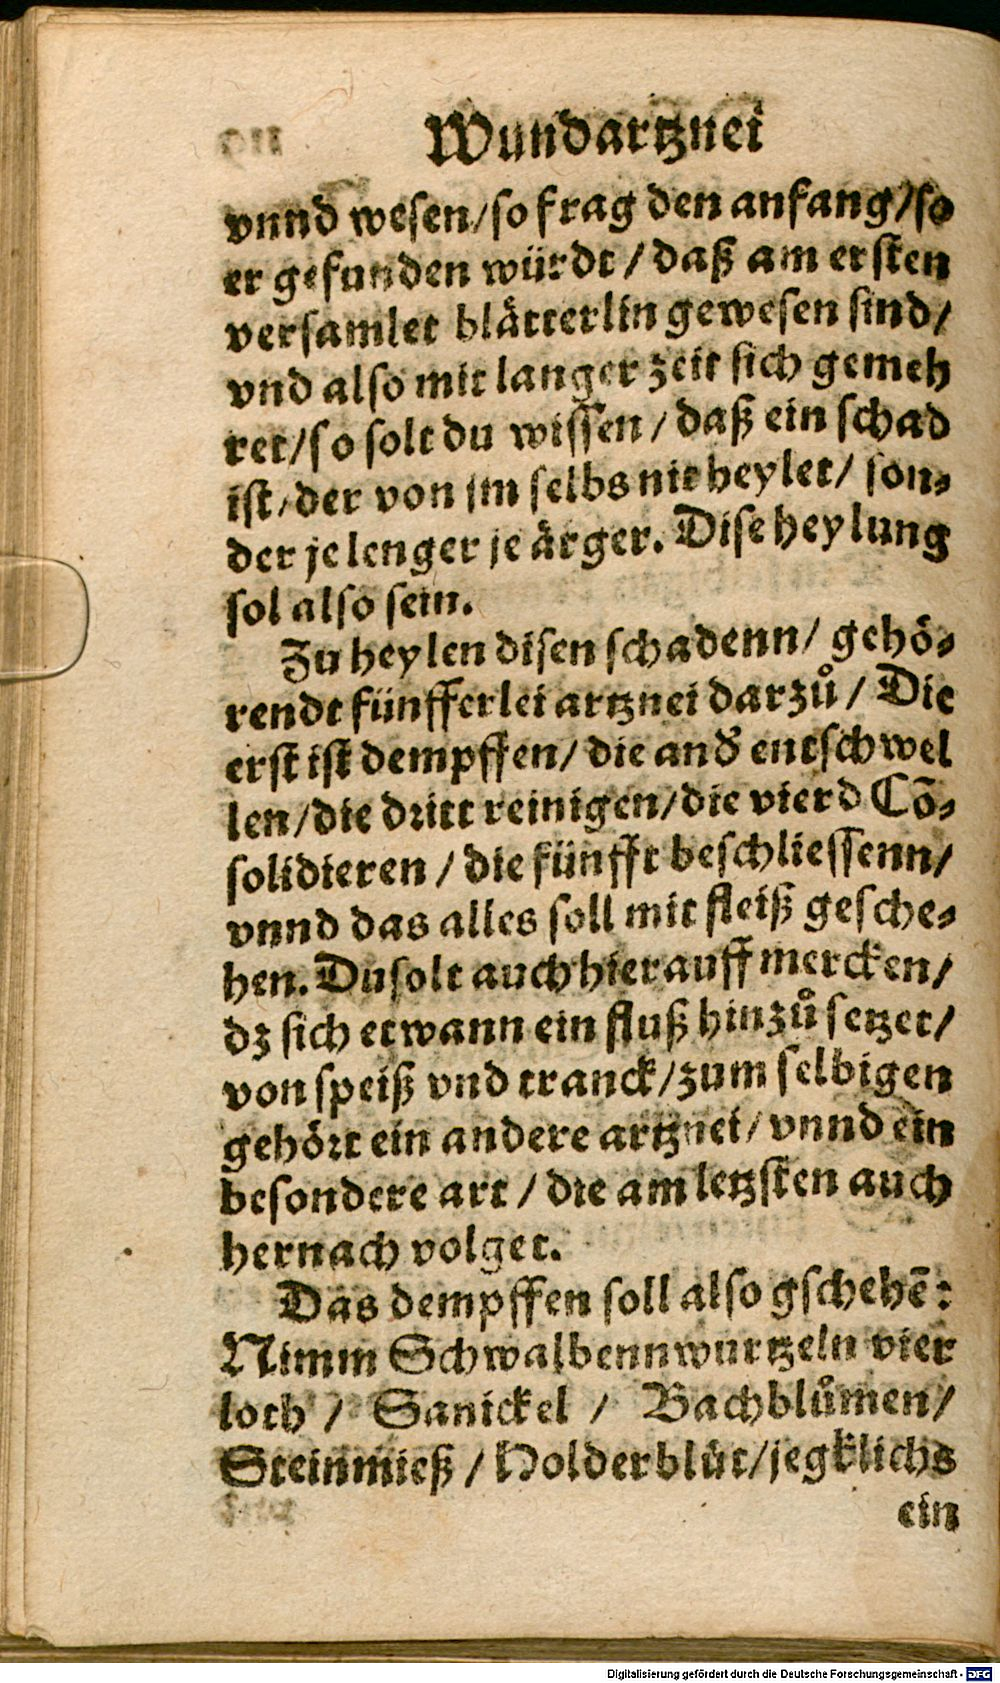 Wundartznei
vnnd wesen/so frag den anfang/so
er gefunden würdt / daß am ersten
versamlet blätterlin gewesen sind/
vnd also mit langer zeit sich gemeh
ret/so solt du wissen/ daß ein schad
ist/der von jm selbs nit heylet/ son⸗
der je lenger je ärger. Dise heylung
sol also sein.
Zu heylen disen schadenn/ gehö⸗
rendt fünfferlei artznei darzů / Die
erst ist dempffen/ die and̕ entschwel
len/die dritt reinigen/die vierd Cõ⸗
solidieren / die fünfft beschliessenn/
vnnd das alles soll mit fleiß gesche⸗
hen. Du solt auch hierauff mercken/
dz sich etwann ein fluß hinzů setzet/
von speiß vnd tranck/zum selbigen
gehört ein andere artznei/ vnnd ein
besondere art / die am letzsten auch
hernach volget.
Das dempffen soll also gschehẽ:
Nimm Schwalbennwurtzeln vier
loth / Sanickel / Bachblůmen/
Steinmieß / Holderblüt/jegklichs
ein
Digitalisierung gefördert durch die Deutsche Forschungsgemeinschaft - DFG